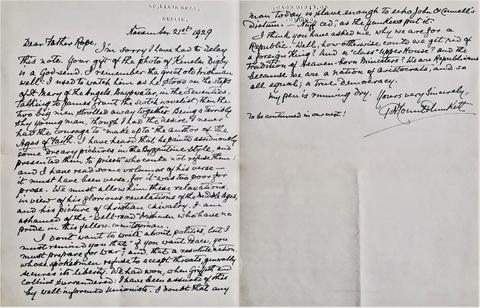 DUBLIN.
November 21st 1929
Dear Father Rope,
I'm sorry I have had to delay
this note. Your gift of the photo of Kenelm Digby
is a godsend. I remember the grand old Irishman
well. I used to watch him as he stood on the steps
of St Mary of the Angels, Bayswater, in the Seventies,
talking to James Grant the Scotch novelist; then the
two big men strolled away together. Being a terribly
shy young man, though I had the desire, I never
had the courage to "make up to" the author of the
Ages of Faith. I have heard that he painted assiduously
some dreary pictures in the Byzantine Style, and
presented them to priests who could not refuse them:
and I have read some volumes of his verse—
it must have been verse, for it was too poor for
prose. We must allow him these relaxations,
in view of his glorious revelations of the Middle Ages,
and his picture of Christian chivalry. I am
ashamed of the "well-read" Irishmen who have no
pride in this fellow-countryman.
I don't want to write about politics, but I
must remind you that "if you want Peace, you
must prepare for war"; and, that a resolute nation
whose spokesmen refuse to accept threats, generally
secures its liberty. We had won, when Griffith and
Collins surrendered. I have been assured of this
by well-informed Unionists. I doubt that any
DUBLIN.
man today is slave enough to echo John O'Connell's
Dictum. - "Nuff ced", as the Yankees put it.
I think you have asked me why we are for a
Republic. Well, how otherwise could we get rid of
a foreign King? And a "class" Upper House? and the
tradition of Heaven-born Ministers? We are Republicans
because we are a nation of aristocrats, and so
all equal; a true democracy.
My pen is running dry.
Yours very sincerely,
G. N. Count Plunkett
To be continued in our next!